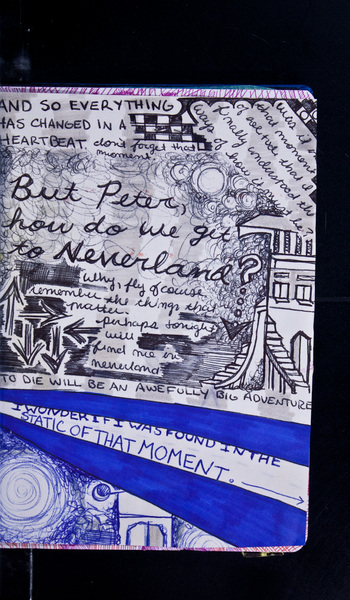 AND SO EVERYTHING
HAS CHANGED IN A
HEARTBEAT don't forget that
moment
But Peter,
how do we get
to Neverland?
why, fly of couse,
remember the things that
matter.
perhaps tonight
will
find me in
neverland
TO DIE WILL BE AN AWEFULLY BIG ADVENTURE
I WONDER IF I WAS FOUND IN THE
STATIC OF THAT MOMENT.